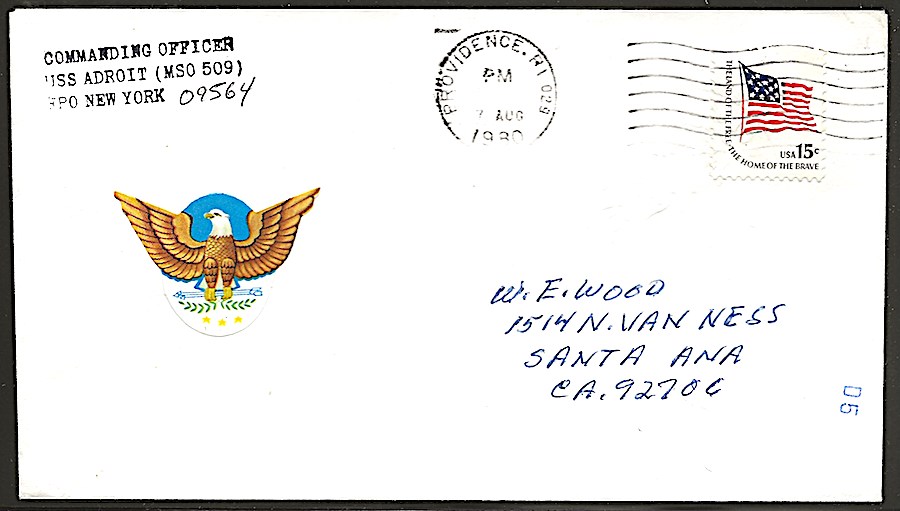 COMMANDING OFFICER
USS ADROIT (MSO 509)
FPO NEW YORK 09564
PROVIDENCE, RI 029
PM
7 AUG
1980
THE LAND OF THE FREE · THE HOME OF THE BRAVE
USA 15c
W. E. WOOD
1514 N. VAN NESS
SANTA ANA
CA. 92706
D5